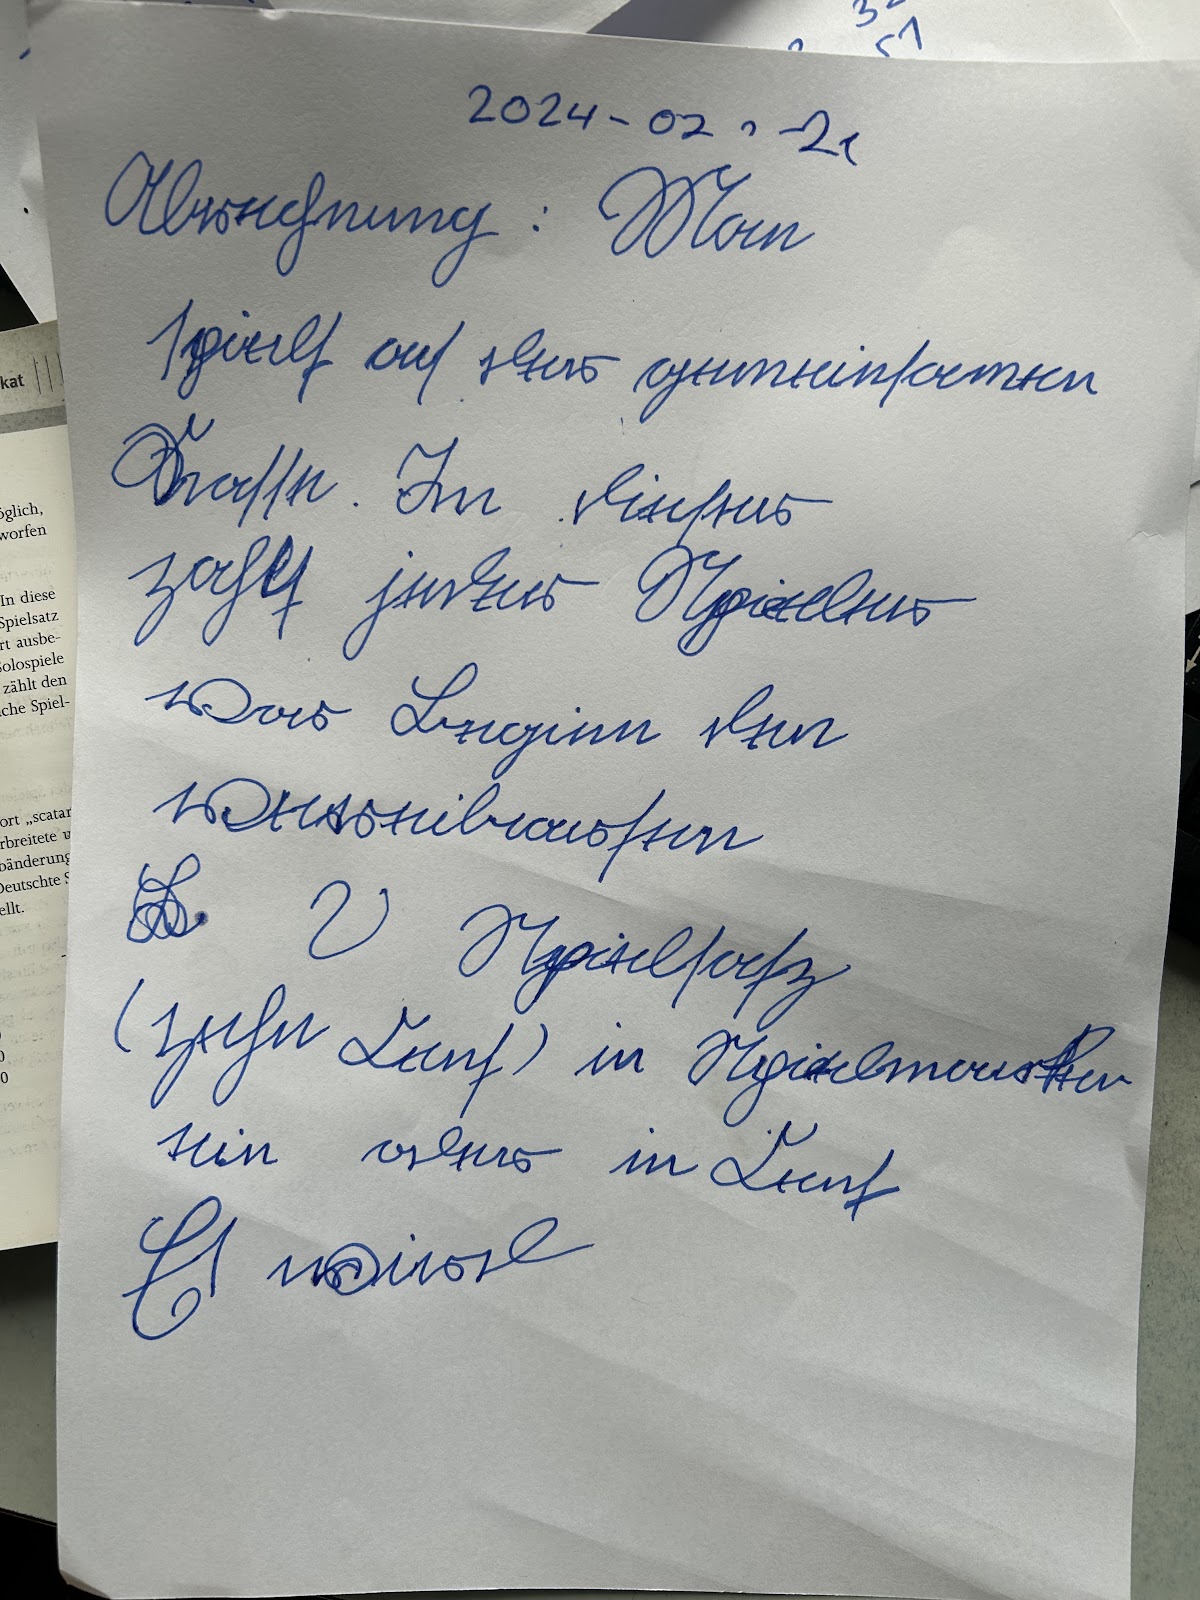 32
51
2024-02-21
Abrechnung: Man
spielt auf der gemeinsamen
Kasse. In dieser
zahlt jeder Spieler
vor Beginn den
vereinbarten
Spielsatz
(zehn Cent) in Spielmarken
ein oder in Cent
Es wird
kat
öglich,
worfen
In diese
Spielsatz
rt ausbe-
Solospiele
zählt den
iche Spiel-
ort „scatar
rbreitete u
bänderung
Deutschte S
ellt.
0
0